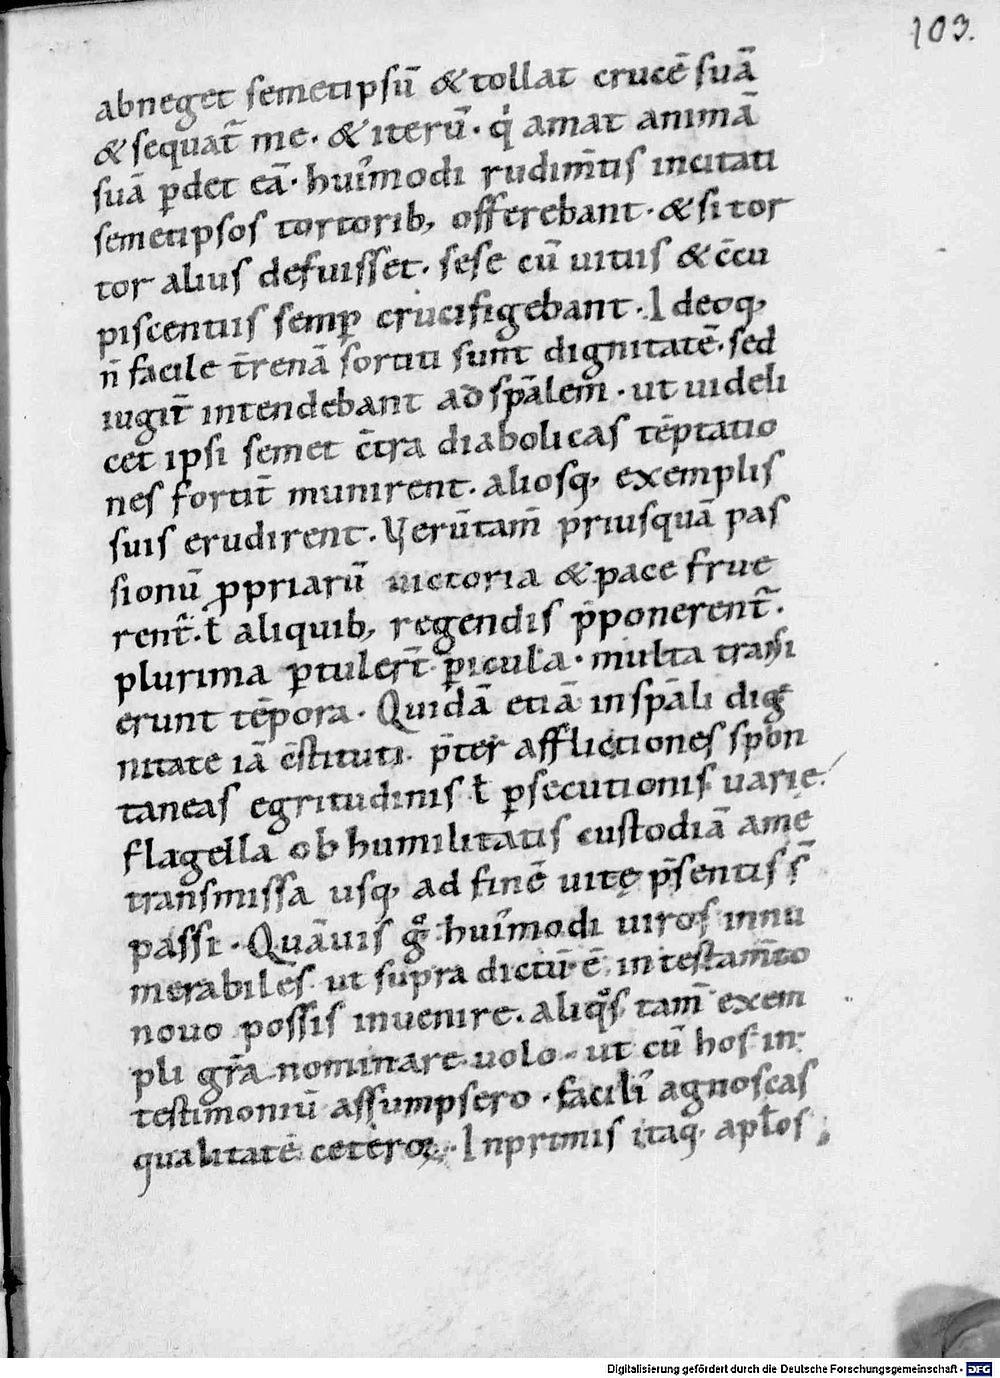 103.
abneget semetipsū & tollat crucē suā
& sequat̄ me. & iterū. q̇ amat animā
suā ꝑdet eā. hui̾modi rudim̄tis incitati
semetipsos tortorib; offerebant. & si tor
tor alius defuisset. sese cū uitiis & c̄cu
piscentiis semꝑ crucifigebant. Ideoq;
n̄ facile t̄renā sortiti sunt dignitatē. sed
iugit̄ intendebant ad sp̄alem. ut uideli
cet ipsi semet c̄tra diabolicas tēptatio
nes fortit̄ munirent. aliosq; exemplis
suis erudirent. Verūtam̄ priusquā pas
sionū ꝓpriarū uictoria & pace frue
rent̄. ł aliquib; regendis p̄ponerent̄.
plurima ꝑtuler̄t ꝑicula. multa transi
erunt tēpora. Quidā etiā in sp̄ali dig
nitate iā c̄stituti. p̄ter afflictiones spon
taneas egritudinis ł ꝑsecutionis uarie
flagella ob humilitatis custodiā a me
transmissa usq; ad finē uitę p̄sentis s̄
passi. Quāuis gͦ hui̾modi uiros innu
merabiles ut supra dictū ē. in testam̄to
nouo possis inuenire. aliqͦs tam̄ exem
pli gr̄a nominare uolo. ut cū hos in
testimoniū assumpsero. facili̾ agnoscas
qualitatē ceteroꝝ. Inprimis itaq; apłos
Digitalisierung gefördert durch die Deutsche Forschungsgemeinschaft - DFG